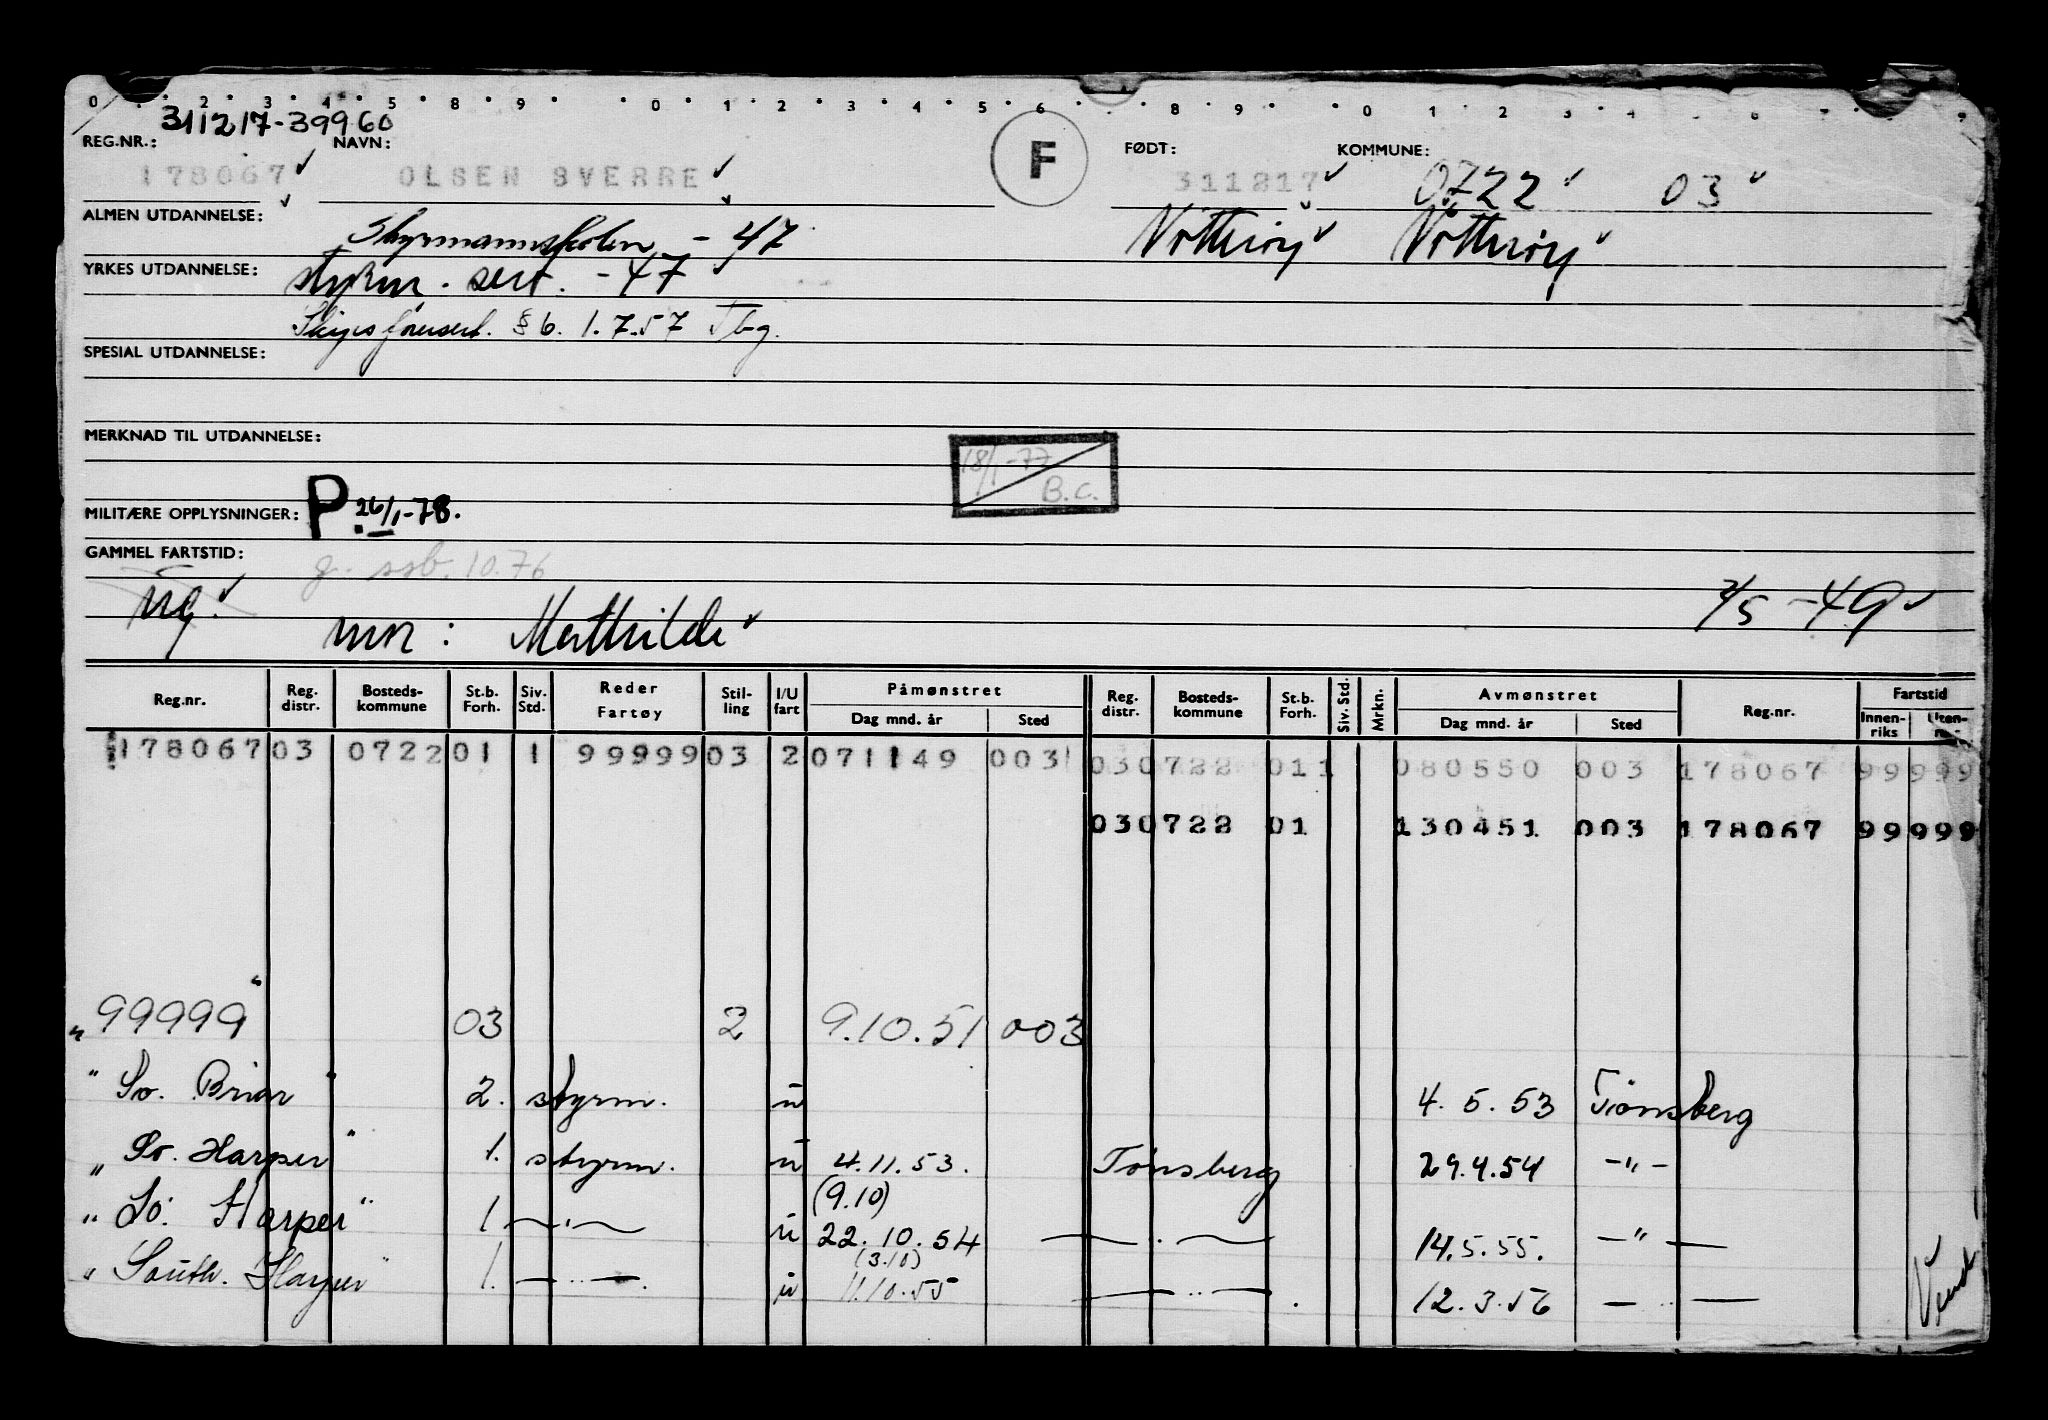 0 . 2 . 3 . 4 . 5 . 8 . 9 . . 0 . 1 . 2 . 3 . 4 . 5 . 6 . 8 . 9 . 0 1 2 3 4
311217-39960
REG.NR.: NAVN: F FØDT: KOMMUNE:
178067 OLSEN SVERRE 311217 0722 03
ALMEN UTDANNELSE: Styrmannsskolen - 47 Nøtterøy Nøtterøy
YRKES UTDANNELSE: styrm. sert. - 47
Skipsførersert. § 6. 1.7.57 Tbg.
SPESIAL UTDANNELSE:
MERKNAD TIL UTDANNELSE:
18/1-77 B.C.
MILITÆRE OPPLYSNINGER: P. 26/1-78.
GAMMEL FARTSTID: g. ssb. 10.76
ug. mn: Mathilde 2/5 -49
Reg.nr. Reg. distr. Bosteds- kommune St.b. Forh. Siv. Std. Reder Fartøy Stil- ling I/U fart Påmønstret Dag mnd. år Sted Reg. distr. Bosteds- kommune St.b. Forh. Siv. Std. Mrkn. Avmønstret Dag mnd. år Sted Reg.nr. Fartstid Innen- riks Uten-
178067 03 0722 01 1 99999 03 2 071149 003 03 0722 01 1 080550 003 178067 99 999
03 0722 01 130451 003 178067 99 999
" 99999 " 03 2 9.10.51 003
" So. Briar " 2. styrm. u 4.5.53 Tönsberg
" So. Harper " 1. styrm. u 4.11.53. Tönsberg 29.4.54 -"-
(9.10)
" So. Harper " 1 -"- u 22.10.54 -"- 14.5.55. -"-
(3.10)
" South. Harper " 1. -"- u 11.10.55 -"- 12.3.56 -"-
Vend